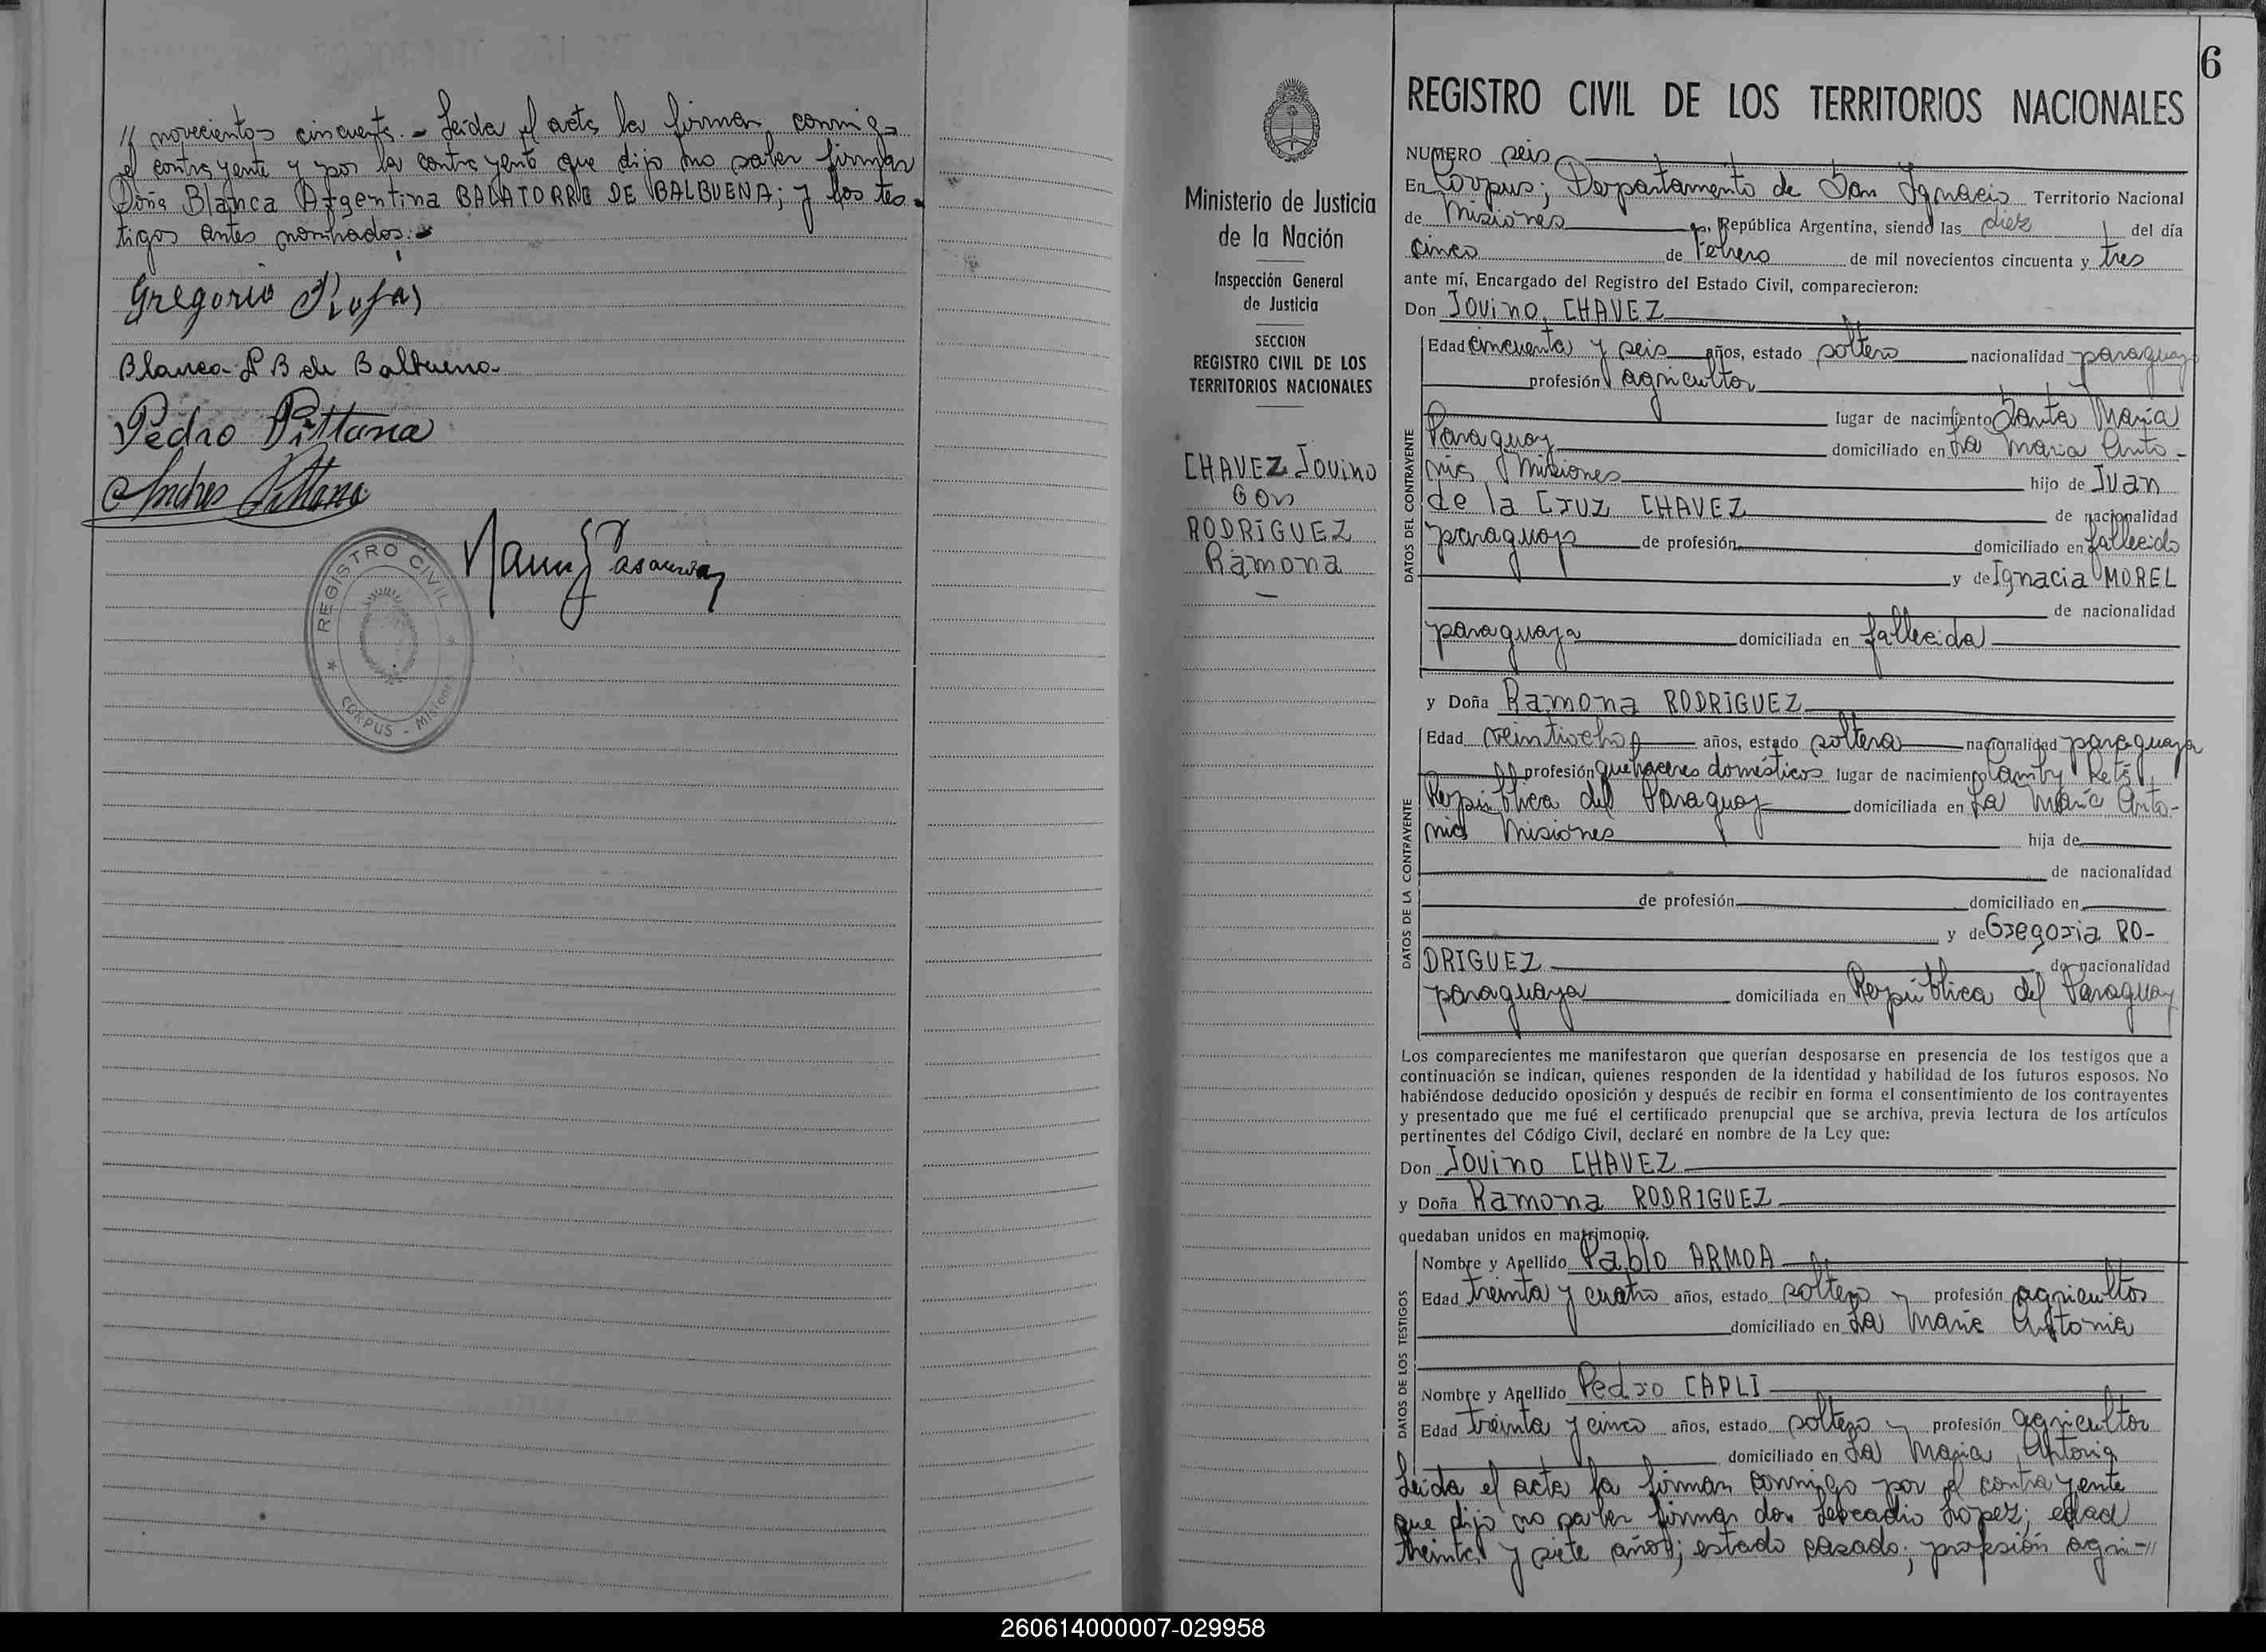 // novecientos cincuenta.- Leida el acta la firman conmigo
el contrayente y por la contrayente que dijo no saber firmar
Doña Blanca Argentina BALATORRE DE BALBUENA; y los tes-
tigos antes nombrados.-
Gregorio Rojas
Blanca A B de Balbuena
Pedro Pittana
Andres Pittana
REGISTRO CIVIL
CORPUS - MISIONES
6
Ministerio de Justicia
de la Nación
Inspección General
de Justicia
SECCION
REGISTRO CIVIL DE LOS
TERRITORIOS NACIONALES
CHAVEZ Jovino
con
RODRIGUEZ
Ramona
REGISTRO CIVIL DE LOS TERRITORIOS NACIONALES
NUMERO seis
En Corpus; Departamento de San Ignacio Territorio Nacional
de Misiones, República Argentina, siendo las diez del día
cinco de Febrero de mil novecientos cincuenta y tres
ante mí, Encargado del Registro del Estado Civil, comparecieron:
Don Jovino CHAVEZ
DATOS DEL CONTRAYENTE
Edad cincuenta y seis años, estado soltero nacionalidad paraguayo
profesión agricultor
lugar de nacimiento Santa Maria
Paraguay domiciliado en La Maria Anto-
nia Misiones hijo de Juan
de la Cruz CHAVEZ de nacionalidad
paraguayo de profesión domiciliado en fallecido
y de Ignacia MOREL
de nacionalidad
paraguaya domiciliada en fallecida
y Doña Ramona RODRIGUEZ
DATOS DE LA CONTRAYENTE
Edad veintiocho años, estado soltera nacionalidad paraguaya
profesión quehaceres domésticos lugar de nacimiento Camby Retá,
República del Paraguay domiciliada en La Maria Anto-
nia Misiones hija de
de nacionalidad
de profesión domiciliado en
y de Gregoria RO-
DRIGUEZ de nacionalidad
paraguaya domiciliada en República del Paraguay
Los comparecientes me manifestaron que querían desposarse en presencia de los testigos que a
continuación se indican, quienes responden de la identidad y habilidad de los futuros esposos. No
habiéndose deducido oposición y después de recibir en forma el consentimiento de los contrayentes
y presentado que me fué el certificado prenupcial que se archiva, previa lectura de los artículos
pertinentes del Código Civil, declaré en nombre de la Ley que:
Don Jovino CHAVEZ
y Doña Ramona RODRIGUEZ
quedaban unidos en matrimonio.
DATOS DE LOS TESTIGOS
Nombre y Apellido Pablo ARMOA
Edad treinta y cuatro años, estado soltero profesión agricultor
domiciliado en La Maria Antonia
Nombre y Apellido Pedro CAPLI
Edad treinta y cinco años, estado soltero profesión agricultor
domiciliado en La Maria Antonia
Leida el acta la firman conmigo por el contrayente
que dijo no saber firmar don Leocadio Lopez; edad
treinta y siete años; estado casado; profesión agri-//
260614000007-029958